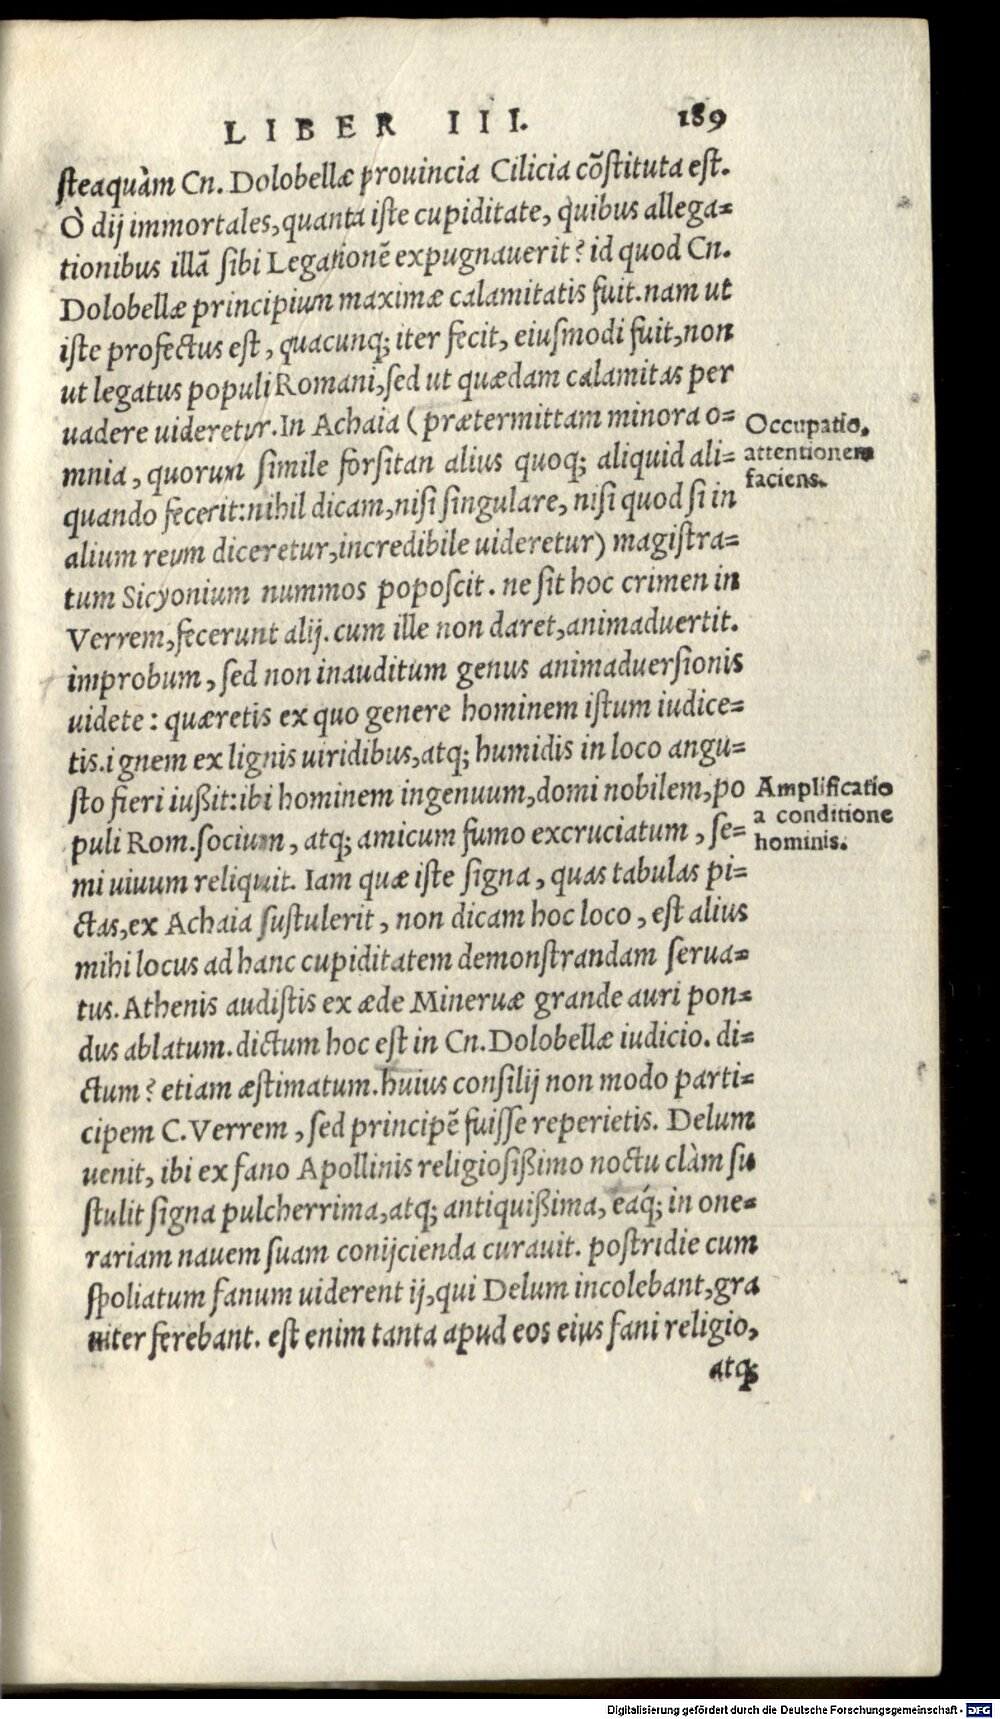 LIBER III. 189
steaquàm Cn. Dolobellæ prouincia Cilicia cõstituta est.
Ò dij immortales, quanta iste cupiditate, quibus allega=
tionibus illã sibi Legationẽ expugnauerit? id quod Cn.
Dolobellæ principium maximæ calamitatis fuit. nam ut
iste profectus est, quacunq; iter fecit, eiusmodi fuit, non
ut legatus populi Romani, sed ut quædam calamitas per
uadere uideretur. In Achaia (prætermittam minora o=
Occupatio,
mnia, quorum simile forsitan alius quoq; aliquid ali=
attentionem
quando fecerit: nihil dicam, nisi singulare, nisi quod si in
faciens.
alium reum diceretur, incredibile uideretur) magistra=
tum Sicyonium nummos poposcit. ne sit hoc crimen in
Verrem, fecerunt alij. cum ille non daret, animaduertit.
improbum, sed non inauditum genus animaduersionis
uidete: quæretis ex quo genere hominem istum iudice=
tis. ignem ex lignis uiridibus, atq; humidis in loco angu=
sto fieri iußit: ibi hominem ingenuum, domi nobilem, po
Amplificatio
puli Rom. socium, atq; amicum fumo excruciatum, se=
a conditione
hominis.
mi uiuum reliquit. Iam quæ iste signa, quas tabulas pi=
ctas, ex Achaia sustulerit, non dicam hoc loco, est alius
mihi locus ad hanc cupiditatem demonstrandam serua=
tus. Athenis audistis ex æde Mineruæ grande auri pon=
dus ablatum. dictum hoc est in Cn. Dolobellæ iudicio. di=
ctum? etiam æstimatum. huius consilij non modo parti=
cipem C. Verrem, sed principẽ fuisse reperietis. Delum
uenit, ibi ex fano Apollinis religiosißimo noctu clàm su
stulit signa pulcherrima, atq; antiquißima, eáq; in one=
rariam nauem suam conijcienda curauit. postridie cum
spoliatum fanum uiderent ij, qui Delum incolebant, gra
uiter ferebant. est enim tanta apud eos eius fani religio,
atq;
Digitalisierung gefördert durch die Deutsche Forschungsgemeinschaft - DFG